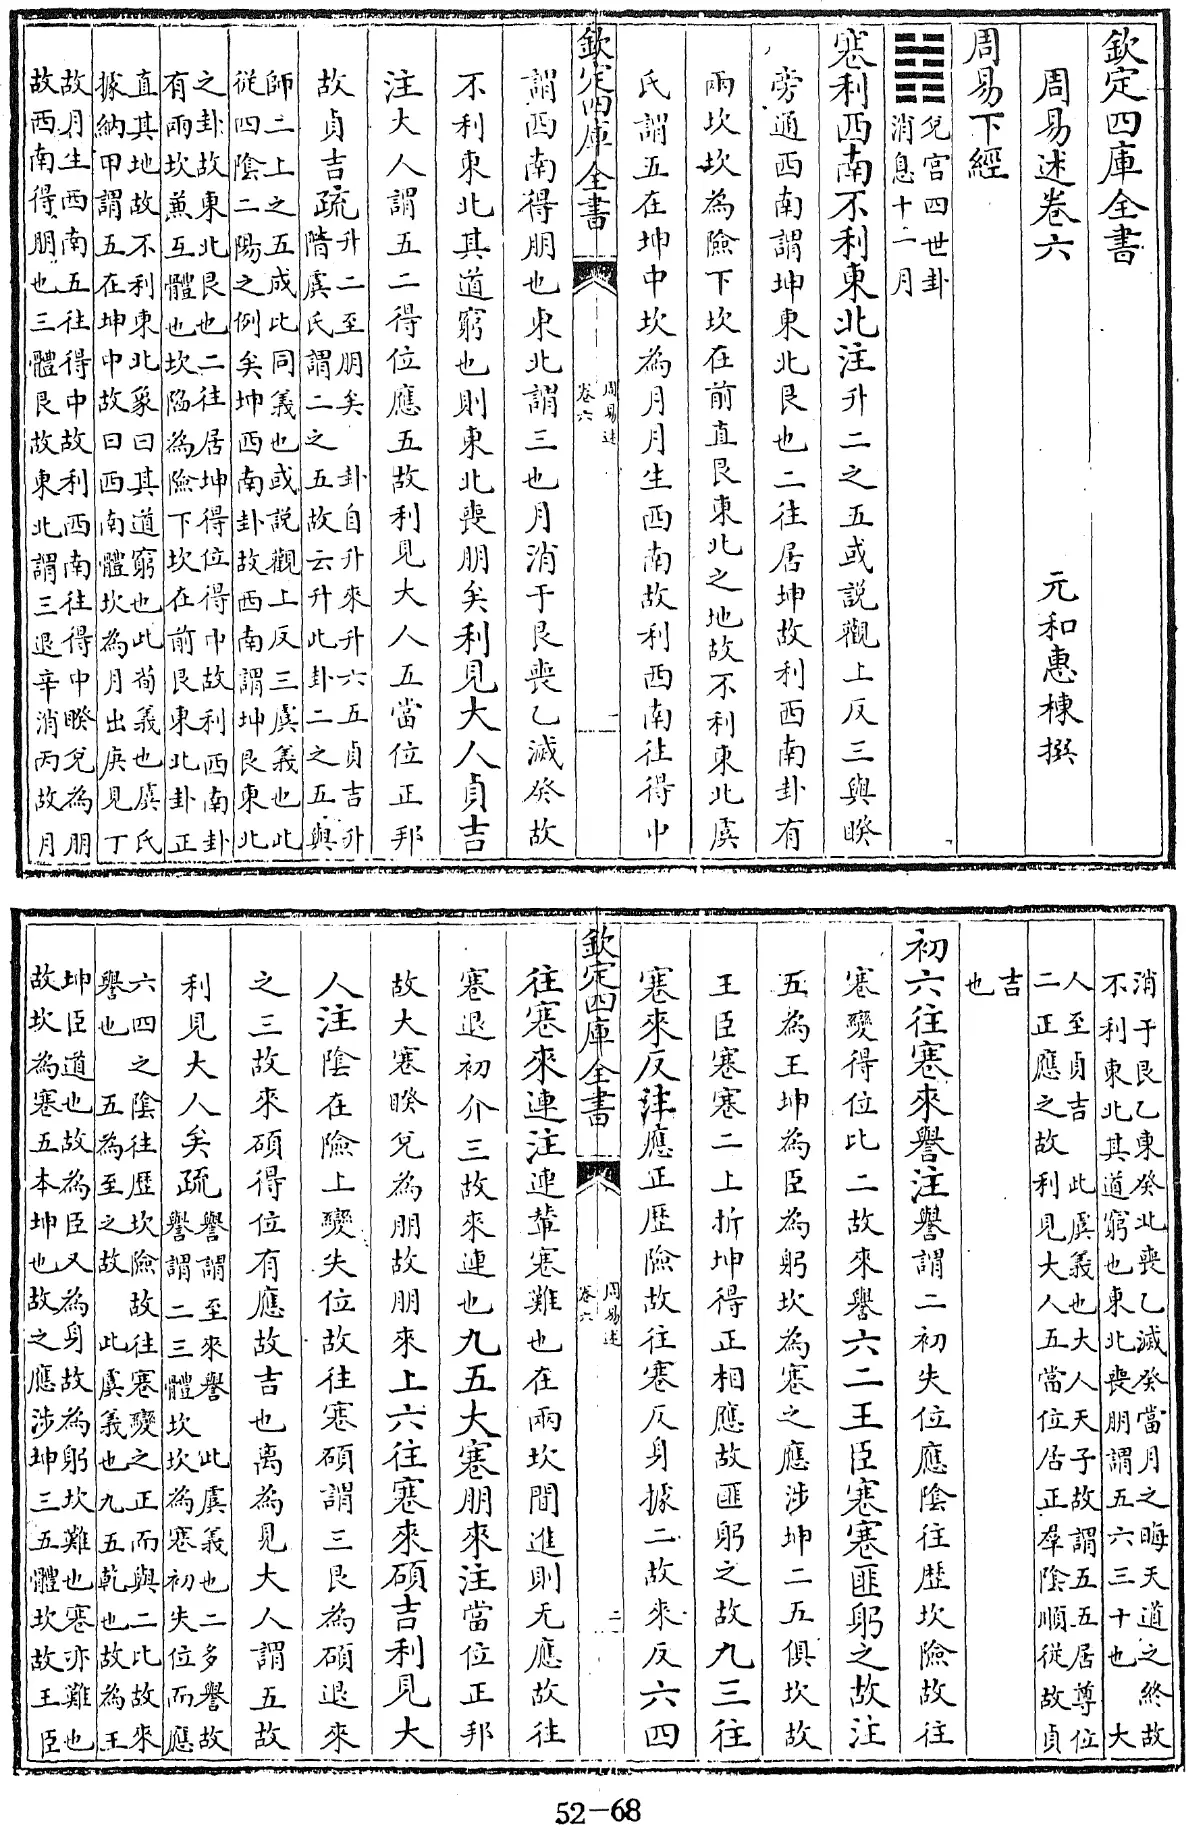 欽定四庫全書
周易述卷六　元和惠棟撰
周易下經
兌宫四世卦
消息十二月
蹇利西南不利東北注升二之五或説觀上反三與睽
旁通西南謂坤東北艮也二往居坤故利西南卦有
兩坎坎為險下坎在前直艮東北之地故不利東北虞
氏謂五在坤中坎為月月生西南故利西南往得中
欽定四庫全書
周易述
卷六
謂西南得朋也東北謂三也月消于艮喪乙滅癸故
不利東北其道窮也則東北喪朋矣利見大人貞吉
注大人謂五二得位應五故利見大人五當位正邦
故貞吉疏
升二至朋矣　卦自升來升六五貞吉升
階虞氏謂二之五故云升此卦二之五與
師二上之五成此同義也或説觀上反三虞義也此
從四陰二陽之例矣坤西南卦故西南謂坤艮東北
之卦故東北艮也二往居坤得位得中故利西南卦
有兩坎兼互體也坎陷為險下坎在前艮東北卦正
直其地故不利東北彖曰其道窮也此荀義也虞氏
據納甲謂五在坤中故曰西南體坎為月出庚見丁
故月生西南五往得中故利西南往得中睽兌為朋
故西南得朋也三體艮故東北謂三退辛消丙故月
消于艮乙東癸北喪乙滅癸當月之晦天道之終故
不利東北其道窮也東北喪朋謂五六三十也　大
人至貞吉　此虞義也大人天子故謂五五居尊位
二正應之故利見大人五當位居正羣陰順從故貞
吉
也
初六往蹇來譽注譽謂二初失位應陰往歷坎險故往
蹇變得位比二故來譽六二王臣蹇蹇匪躬之故注
五為王坤為臣為躬坎為蹇之應涉坤二五俱坎故
王臣蹇蹇二上折坤得正相應故匪躬之故九三往
蹇來反注應正歷險故往蹇反身據二故來反六四
欽定四庫全書
周易述
卷六
二
往蹇來連注連輦蹇難也在兩坎間進則无應故往
蹇退初介三故來連也九五大蹇朋來注當位正邦
故大蹇睽兌為朋故朋來上六往蹇來碩吉利見大
人注陰在險上變失位故往蹇碩謂三艮為碩退來
之三故來碩得位有應故吉也离為見大人謂五故
利見大人矣疏
譽謂至來譽　此虞義也二多譽故
譽謂二三體坎坎為蹇初失位而應
六四之陰往歷坎險故往蹇變之正而與二比故來
譽也　五為至之故　此虞義也九五乾也故為王
坤臣道也故為臣又為身故為躬坎難也蹇亦難也
故坎為蹇五本坤也故之應涉坤三五體坎故王臣
52-68